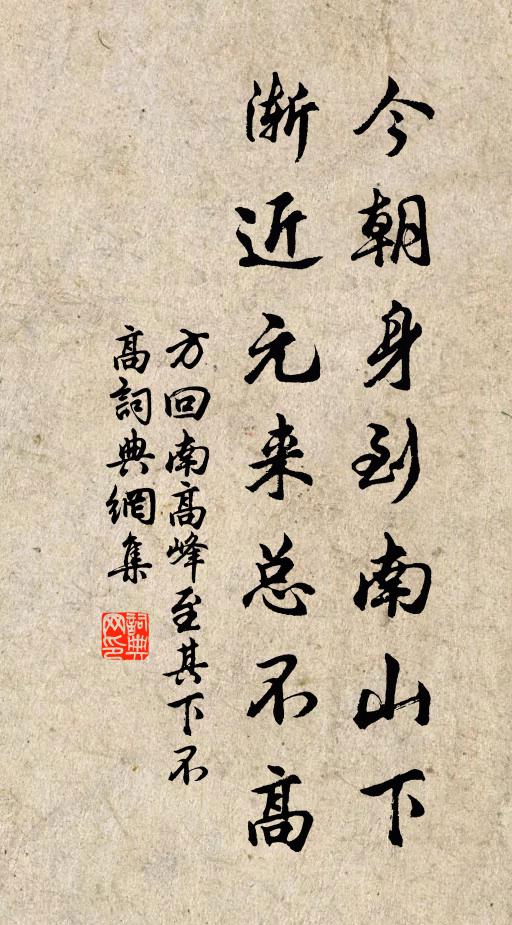 今朝身到南山下
渐近元来总不高
方回南高峰至其下不
高詞典網集
詞典
网印